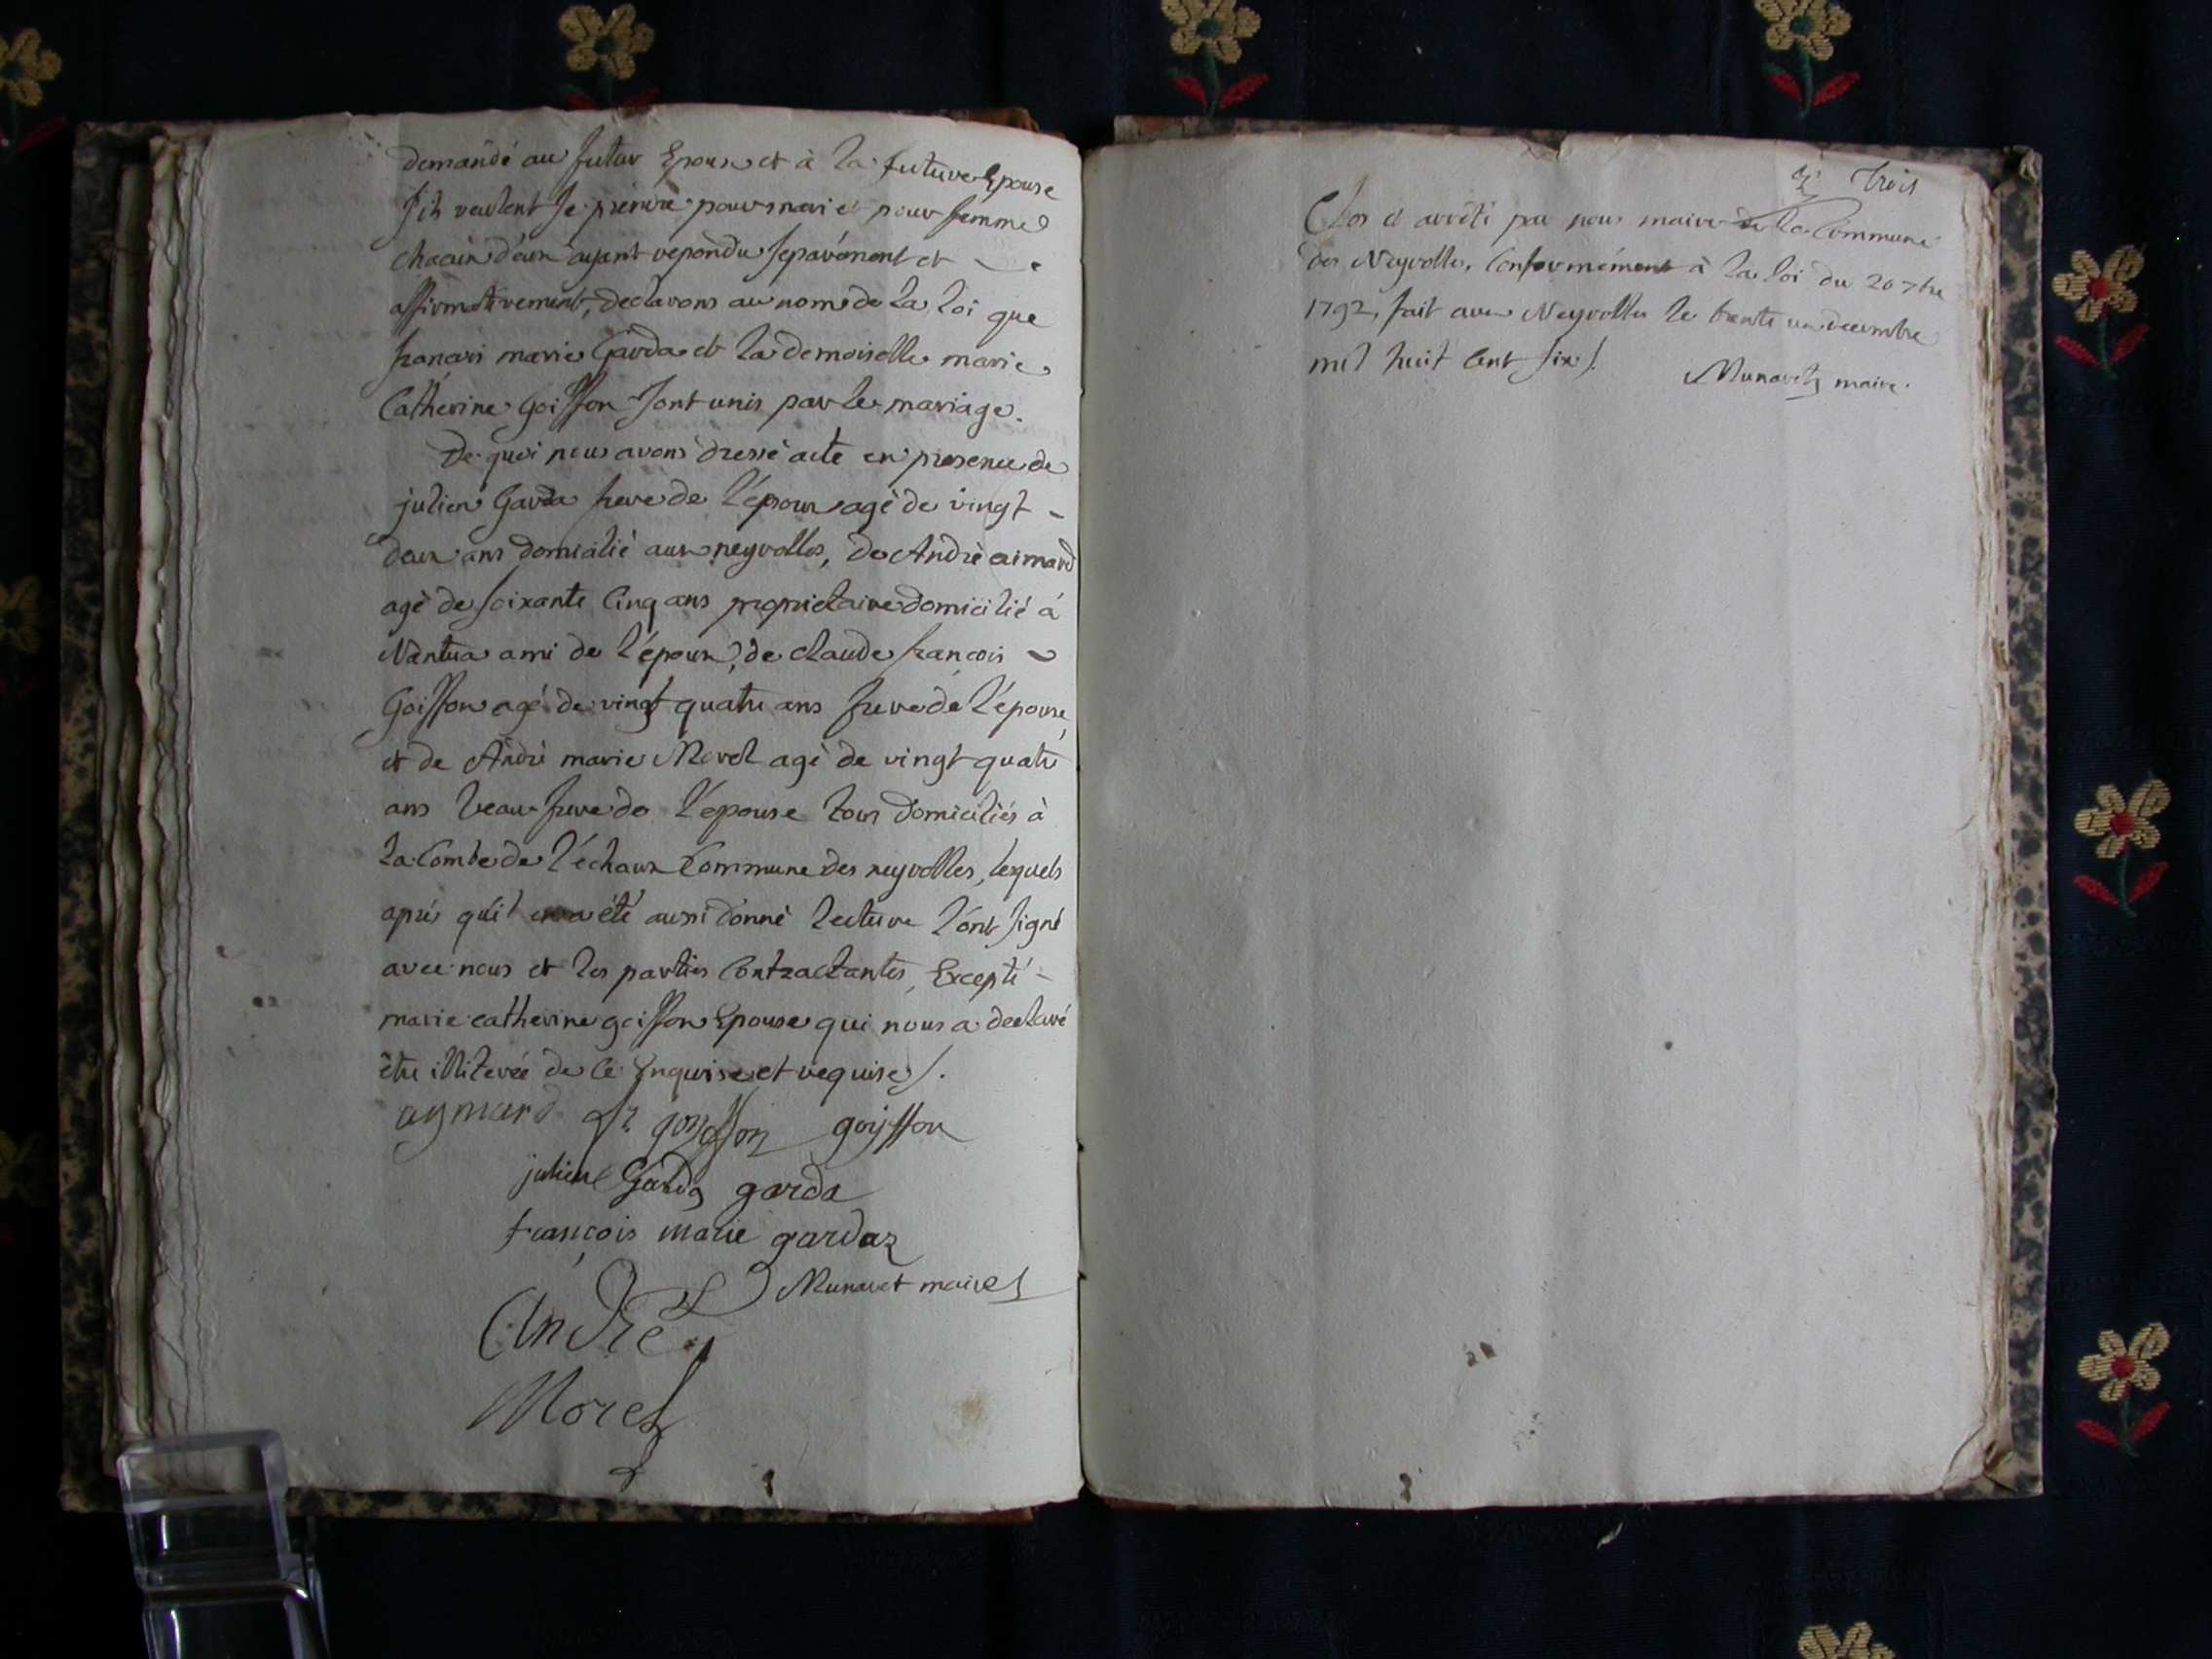 demandé au futur Epoux et à la future Epouse
s'ils veulent se prendre pour mari et pour femme
chacun d'eux ayant repondu separément et
affirmativement, declarons au nom de la loi que
françois marie Garda et la demoiselle marie
Catherine Goiffon sont unis par le mariage.
De quoi nous avons dressé acte en presence de
julien Garda frere de l'époux agé de vingt
deux ans domicilié aux neyrolles, de André aimard
agé de soixante Cinq ans proprietaire domicilié à
Nantua ami de l'époux, de claude françois
Goiffon agé de vingt quatre ans frere de l'épouse,
et de André marie Morel agé de vingt quatre
ans beau frere de l'épouse tous domiciliés à
la Combe de l'échaux Commune des neyrolles, lesquels
aprés qu'il en a été aussi donné lecture l'ont signé
avec nous et les parties Contractantes, Excepté
marie catherine goiffon Epouse qui nous a declaré
être illiterée de Ce Enquise et requise /.
aymard goyffon goyffon
julien Garda garda
françois marie gardaz
Munaret maire
André
Morel
trois
Clos et arrêté par nous maire de la Commune
des Neyrolles, Conformément à la loi du 20 7bre
1792, fait aux Neyrolles le trente un decembre
mil huit Cent six /.
Munaret maire.